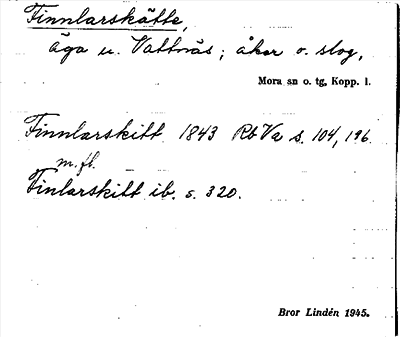 Finnlarskätte,
äga u. Vattnäs; åker o. slog.
Mora sn o. tg, Kopp. l.
Finnlarskitt 1843 Rb Va s. 104, 196
m. fl.
Finlarskitt ib. s. 320.
Bror Lindén 1945.